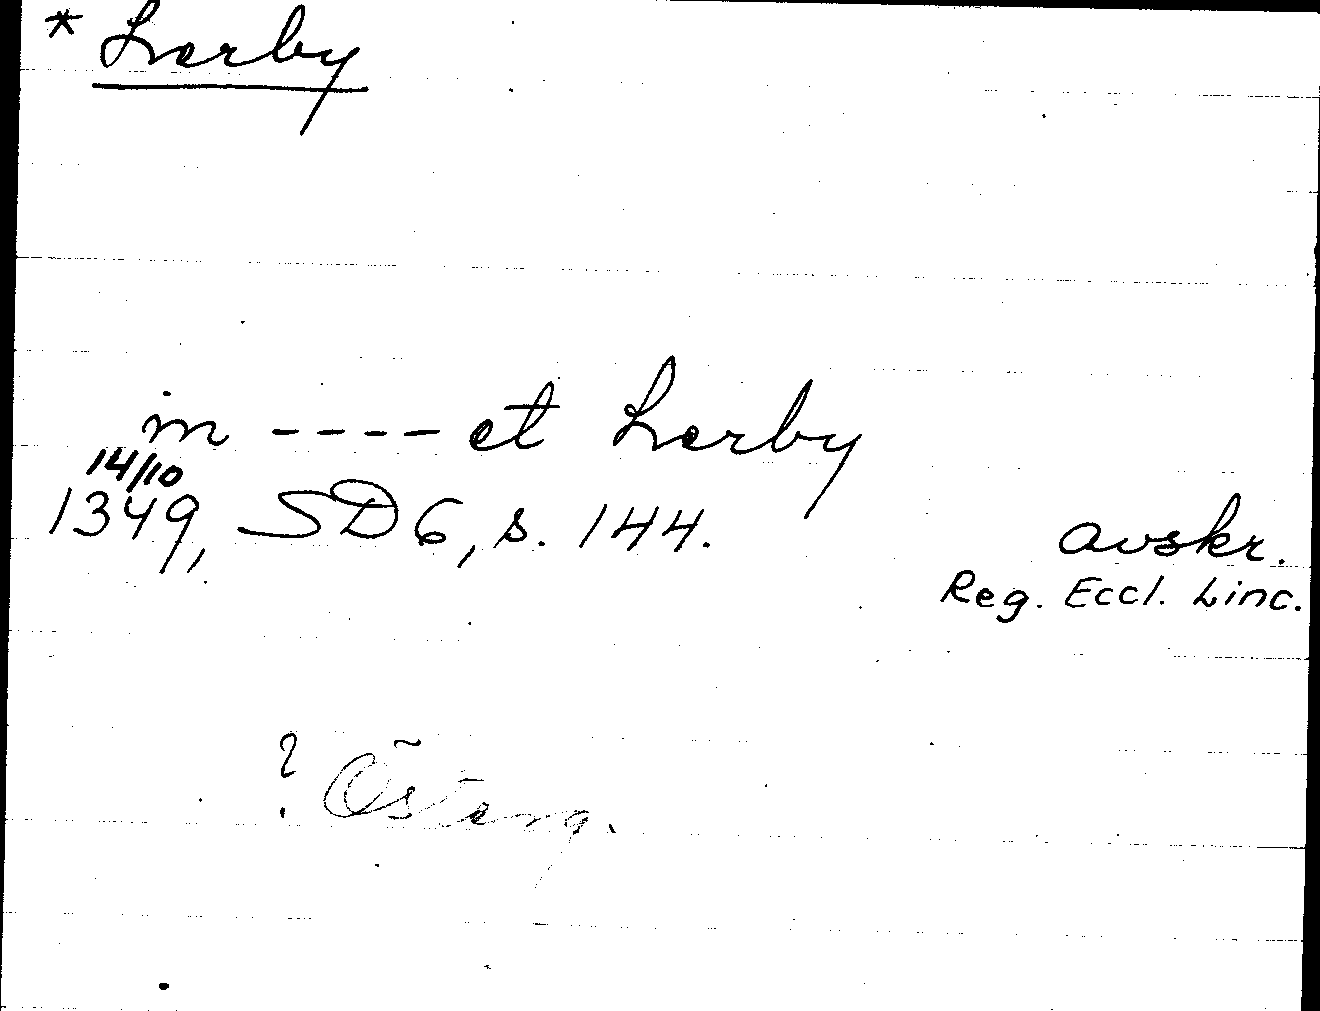 * Lerby
in ---- et Lerby
14/10
1349, SD 6, s. 144.
avskr.
Reg. Eccl. Linc.
? Österg.